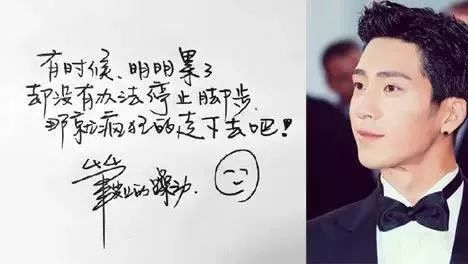 有时候、明明累了
却没有办法停止脚步.
那就疯狂的走下去吧!
上的躁动.